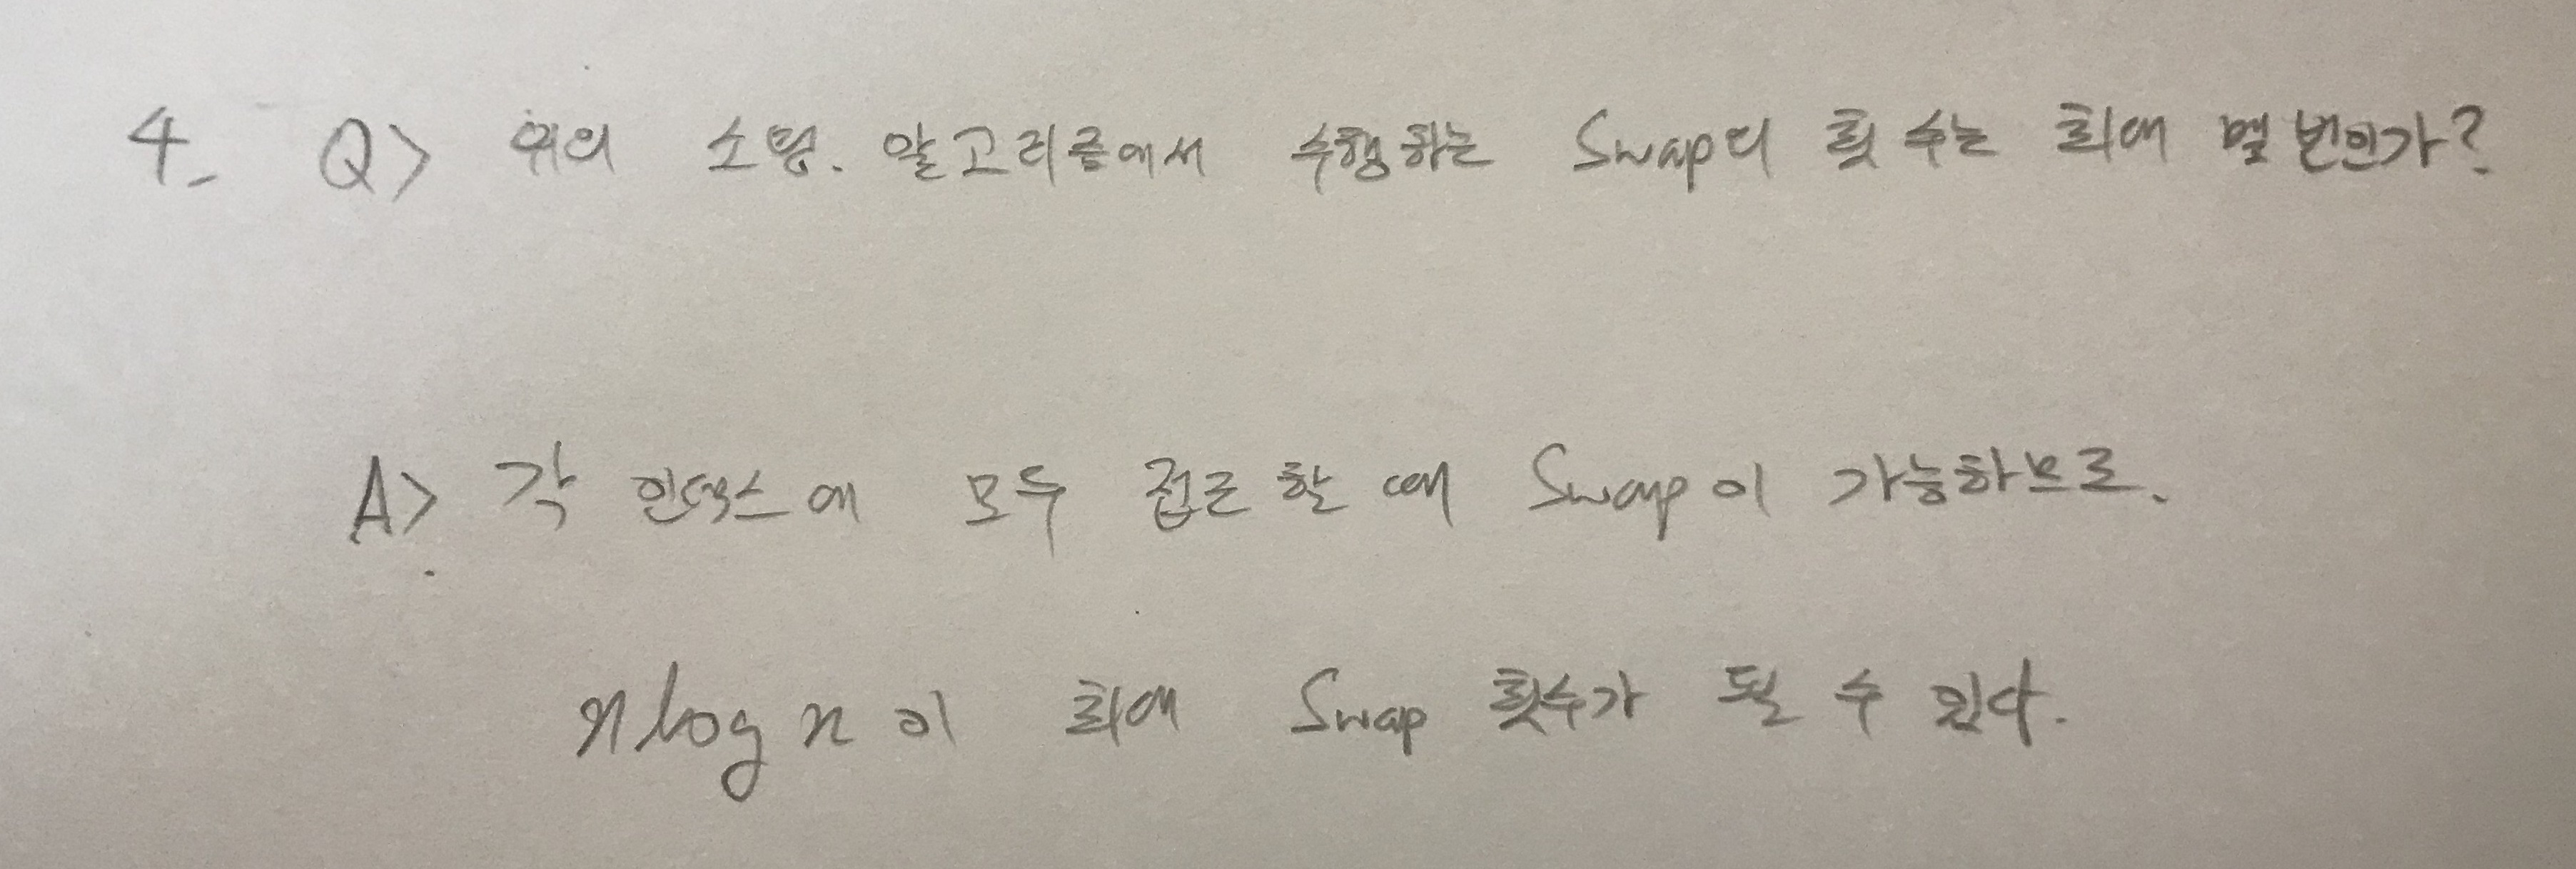 4. Q> 위의 소팅. 알고리즘에서 수행하는 Swap의 횟수는 최대 몇 번인가?
A> 각 인덱스에 모두 접근할 때 Swap이 가능하므로.
n log n이 최대 Swap 횟수가 될 수 있다.